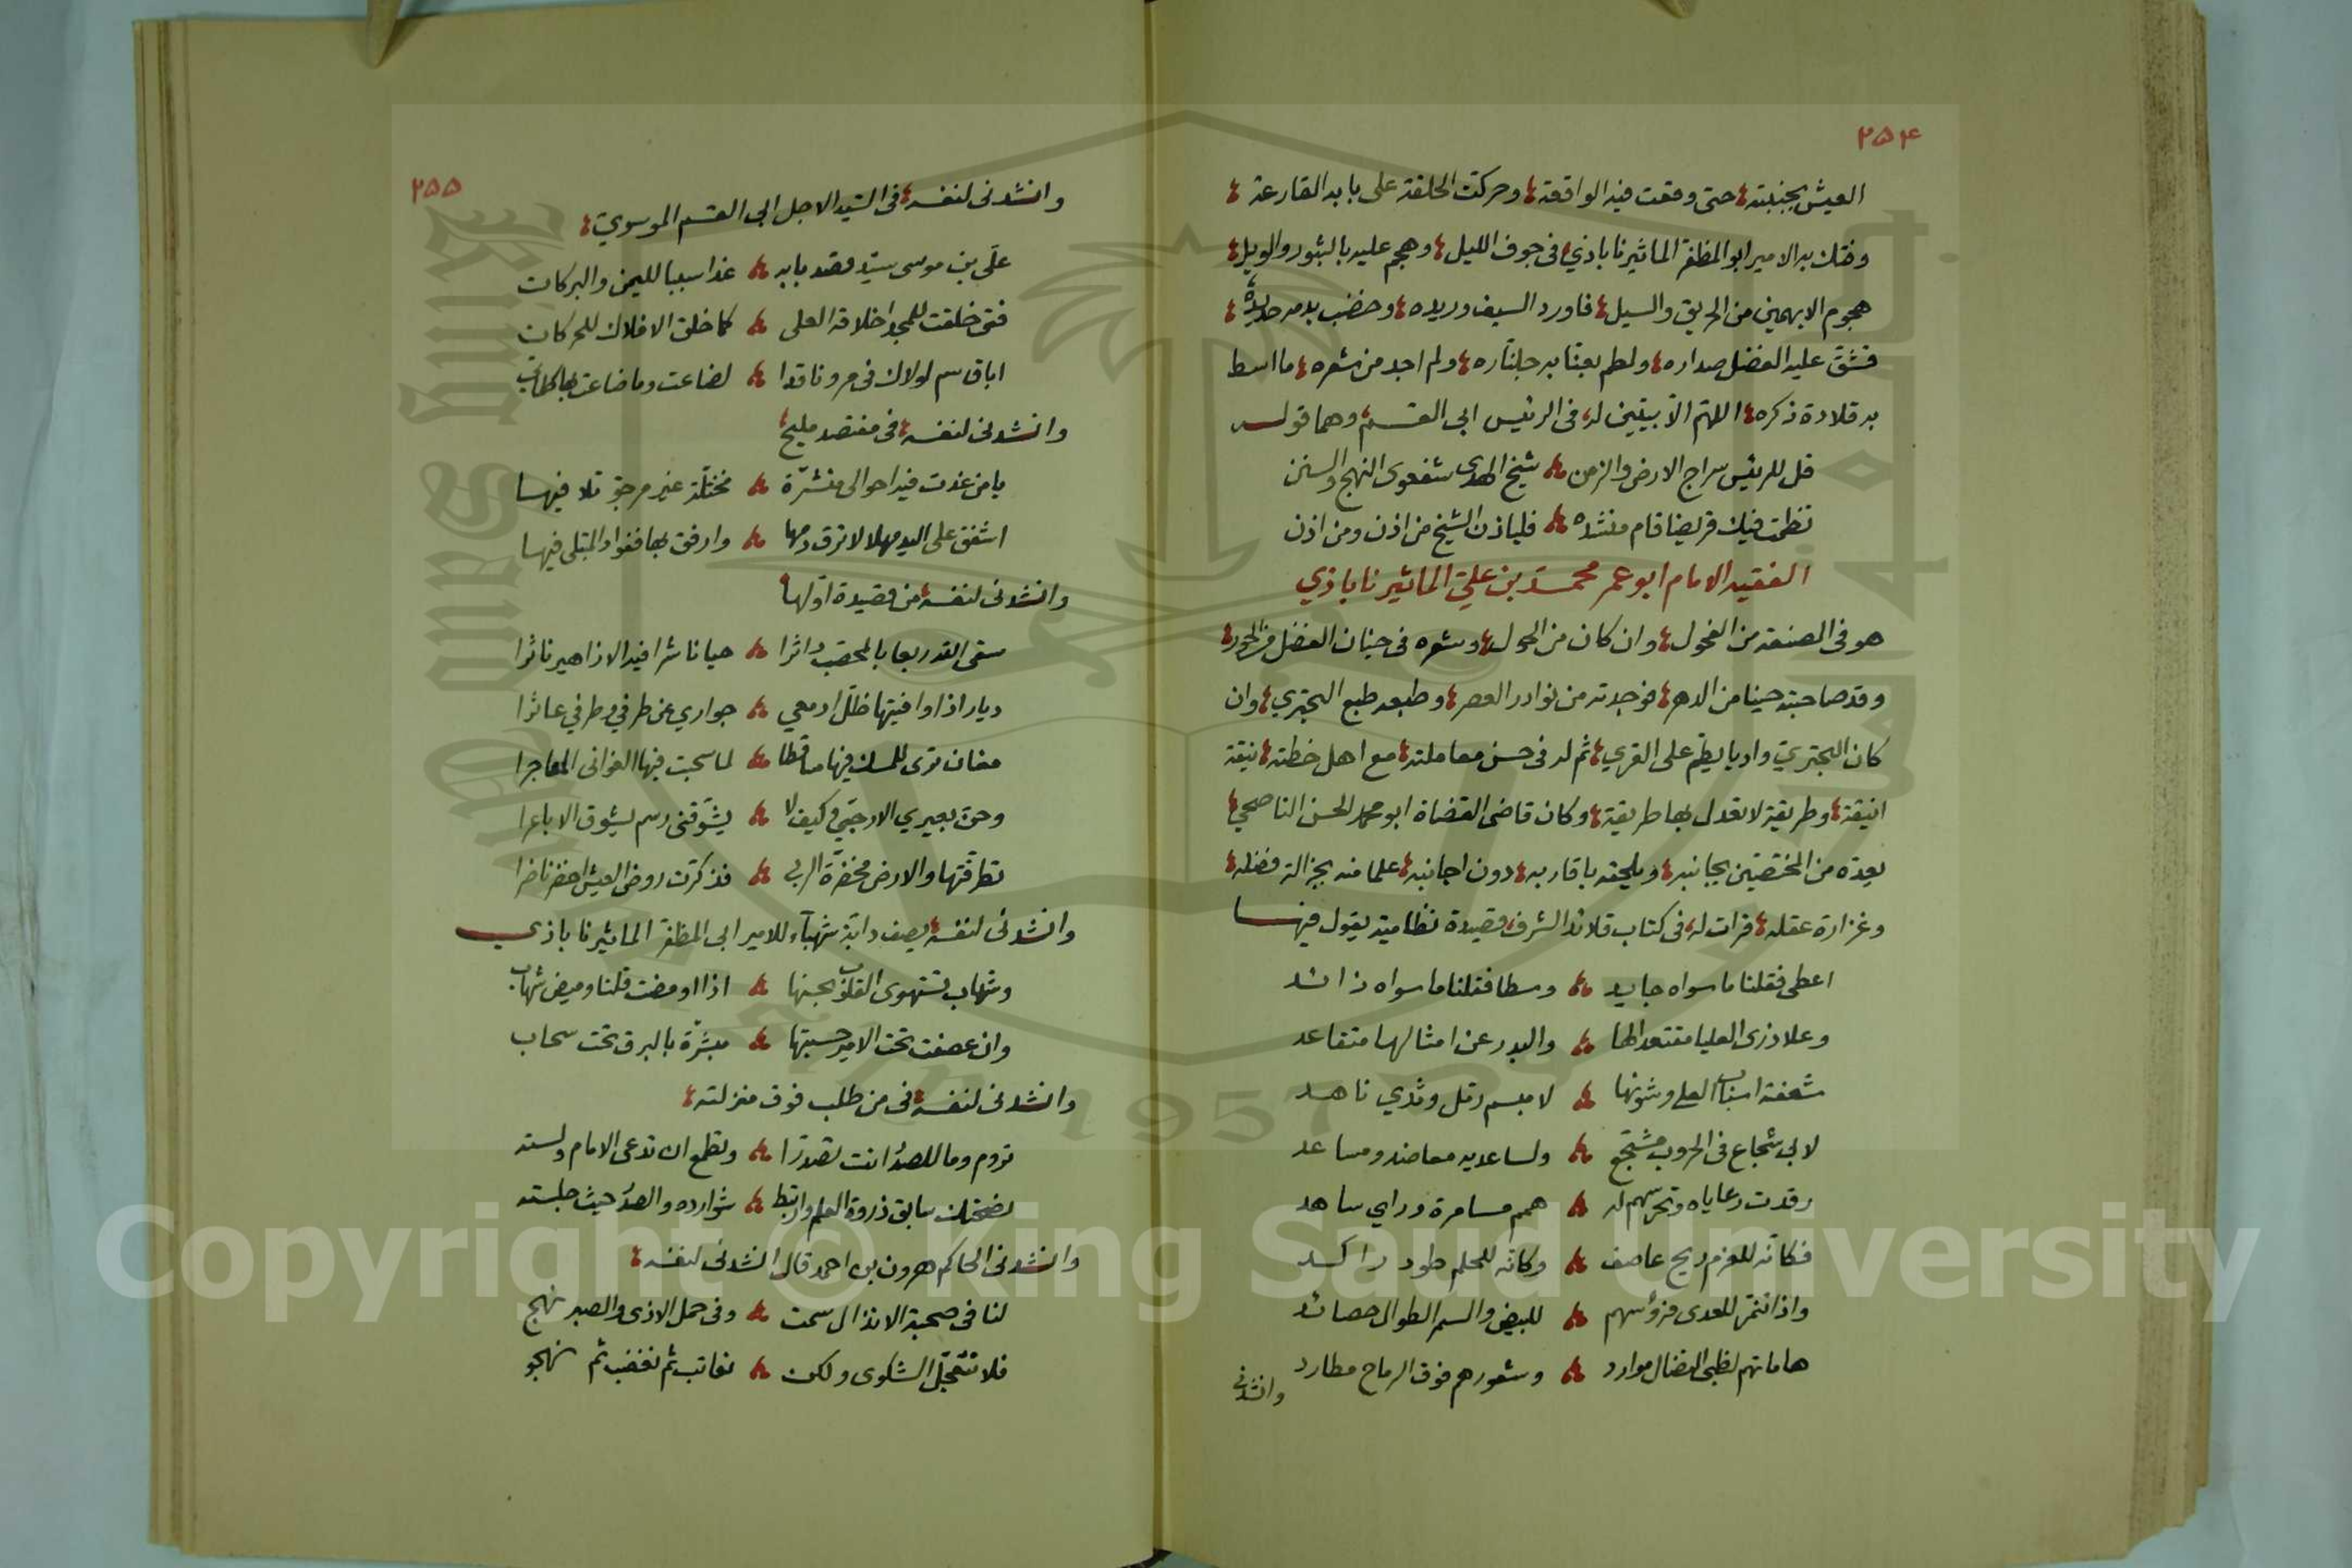 ٢٥٤
العيش بجنبته حتى وقعت فيه الواقعة وحركت الحلقة على بابه القارعة
وفتك به الامير ابو المظفر الماثيرناباذي في جوف الليل وهجم عليه بالثبور والويل
هجوم الايهمين من الحريق والسيل فاورد السيف وريده وخضب بدمه حديده
فشق عليه الفضل صداره ولطم بعنابه جلناره ولم اجد من شعره ما اسط
به قلادة ذكره اللهم الا بيتين له في الرئيس ابي القسم وهما قوله
قل للرئيس سراج الارض والزمن شيخ الهدى شفعوى النهج والسنن
نظمت فيك قريضا قام منشده فلياذن الشيخ من اذن ومن اذن
الفقيه الامام ابو عمر محمد بن علي الماثيرناباذي
هو في الصنعة من الفحول وان كان من الحول وشعره في جنان الفضل من الحور
وقد صاحبته حينا من الدهر فوجدته من نوادر العصر وطبعه طبع البحتري وان
كان البحتري واديا يطم على القري ثم له في حسن معاملته مع اهل خطته نيقة
انيقة وطريقة لا يعدل بها طريقة وكان قاضى القضاة ابو محمد الحسن الناصحي
يعده من المختصين بجانبه ويلحقه باقاربه دون اجانبه علما منه بجزالة فضله
وغزارة عقله قرات له في كتاب قلائد الشرف قصيدة نظامية يقول فيها
اعطى فقلنا ما سواه جايد وسطا فقلنا ما سواه ذائد
وعلا ذرى العليا مقتعدا لها والبدر عن امثالها متقاعد
شعفته اسباب العلى وشؤنها لا مبسم رتل وثدي ناهد
لابي شجاع في الحروب مشجع ولساعديه معاضد ومساعد
رقدت رعاياه وتحرسهم له همم مسامرة وراي ساهد
فكانه للعزم ريح عاصف وكانه للحلم طود راكد
واذا تنمر للعدى فرؤسهم للبيض والسمر الطوال حصائد
هاماتهم لظبى النصال موارد وشعورهم فوق الرماح مطارد
وانشدني
٢٥٥
وانشدنى لنفسه في السيد الاجل ابي القسم الموسوي
على بن موسى سيد قصد بابه غدا سببا لليمن والبركات
فتى خلقت للمجد اخلاقه العلى كما خلق الافلاك للحركات
اباقاسم لولاك في مرو ناقدا لضاعت وما ضاعت بها كلماتي
وانشدنى لنفسه في مفتصد مليح
يا من غدت فيه احوالى منشرة مختلة غير مرجو تلافيها
اشفق على اليد مهلا لا ترق دمها وارفق بها ففواد المبتلى فيها
وانشدنى لنفسه من قصيدة اولها
سقى القدر ربعا بالمحصب داثرا حيا ناشرا فيه الازاهير ناثرا
ديار اذا وافيتها ظل ادمعي جواري عن طرفي وطرفي عاثرا
مغان ترى للمسك فيها ساقطا لما سحبت فيها الغوانى المعاجرا
وحن بعيري الارحبي وكيف لا يشوقنى رسم يشوق الاباعرا
تطرقتها والارض مخضرة الربى فذكرت روض العيش اخضر ناضرا
وانشدنى لنفسه يصف دابة شهباء للامير ابى المظفر الماثيرناباذي
وشهاب تستهوى القلوب بحسنها اذا اومضت قلنا وميض شهاب
وان عصفت تحت الامير حسبتها مبشرة بالبرق تحت سحاب
وانشدنى لنفسه في من طلب فوق منزلته
تروم وما للصدر انت تصدرا وتطمع ان تدعى الامام ولسته
نصحتك سابق ذروة العلم وارتبط شوارده والصدر حيث جلسته
وانشدنى الحاكم هرون بن احمد قال انشدنى لنفسه
لنا في صحبة الانذال سمت وفي حمل الاذى والصبر نهج
فلا تتعجل الشكوى ولكن نعاتب ثم نغضب ثم نهجو
Copyright © King Saud University
1957